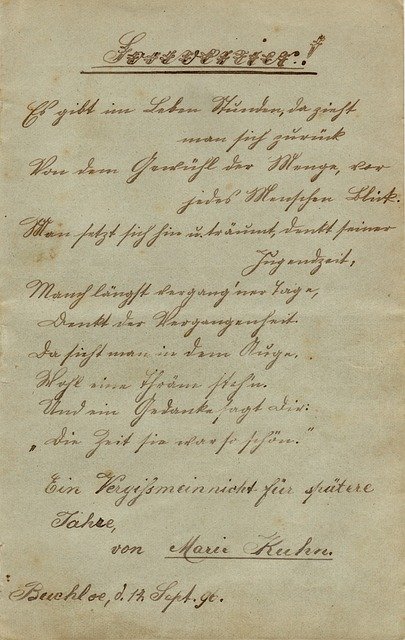 Es gibt im Leben Stunden, da zieht
man sich zurück
Von dem Gewühl der Menge, vor
jedes Menschen Blick.
Man setzt sich hin u. träumt, denkt seiner
Jugendzeit,
Manch längst vergang'ner Tage,
Denkt der Vergangenheit.
Da sieht man in dem Auge,
Wohl eine Thräne steh'n.
Und ein Gedanke sagt dir:
„Die Zeit sie war so schön."
Ein Vergißmeinnicht für spätere
Jahre,
von Marie Kuhn.
Buchloe, d. 12. Sept. 90.